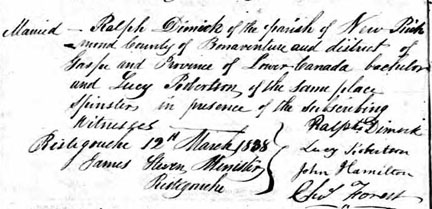 Married — Ralph Dimick of the parish of New Rich
=mond County of Bonaventure and district of
Gaspe and Province of Lower-Canada bachelor
and Lucy Robertson of the same place
Spinster in presence of the subscribing
Witnesses — Ralph Dimick
Ristigouche 12th March 1838 Lucy Robertson
James Steven Minister John Hamilton
Ristigouche Forrest